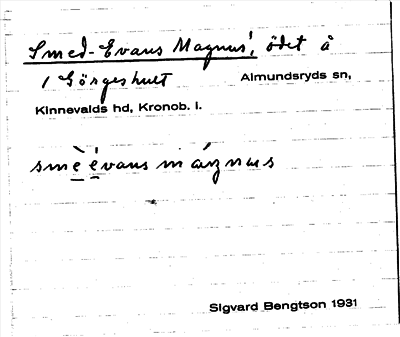 Smed-Evans Magnus', ödet å
1 Görgeshult Almundsryds sn,
Kinnevalds hd, Kronob. l.
smè évans máŋnus
Sigvard Bengtson 1931